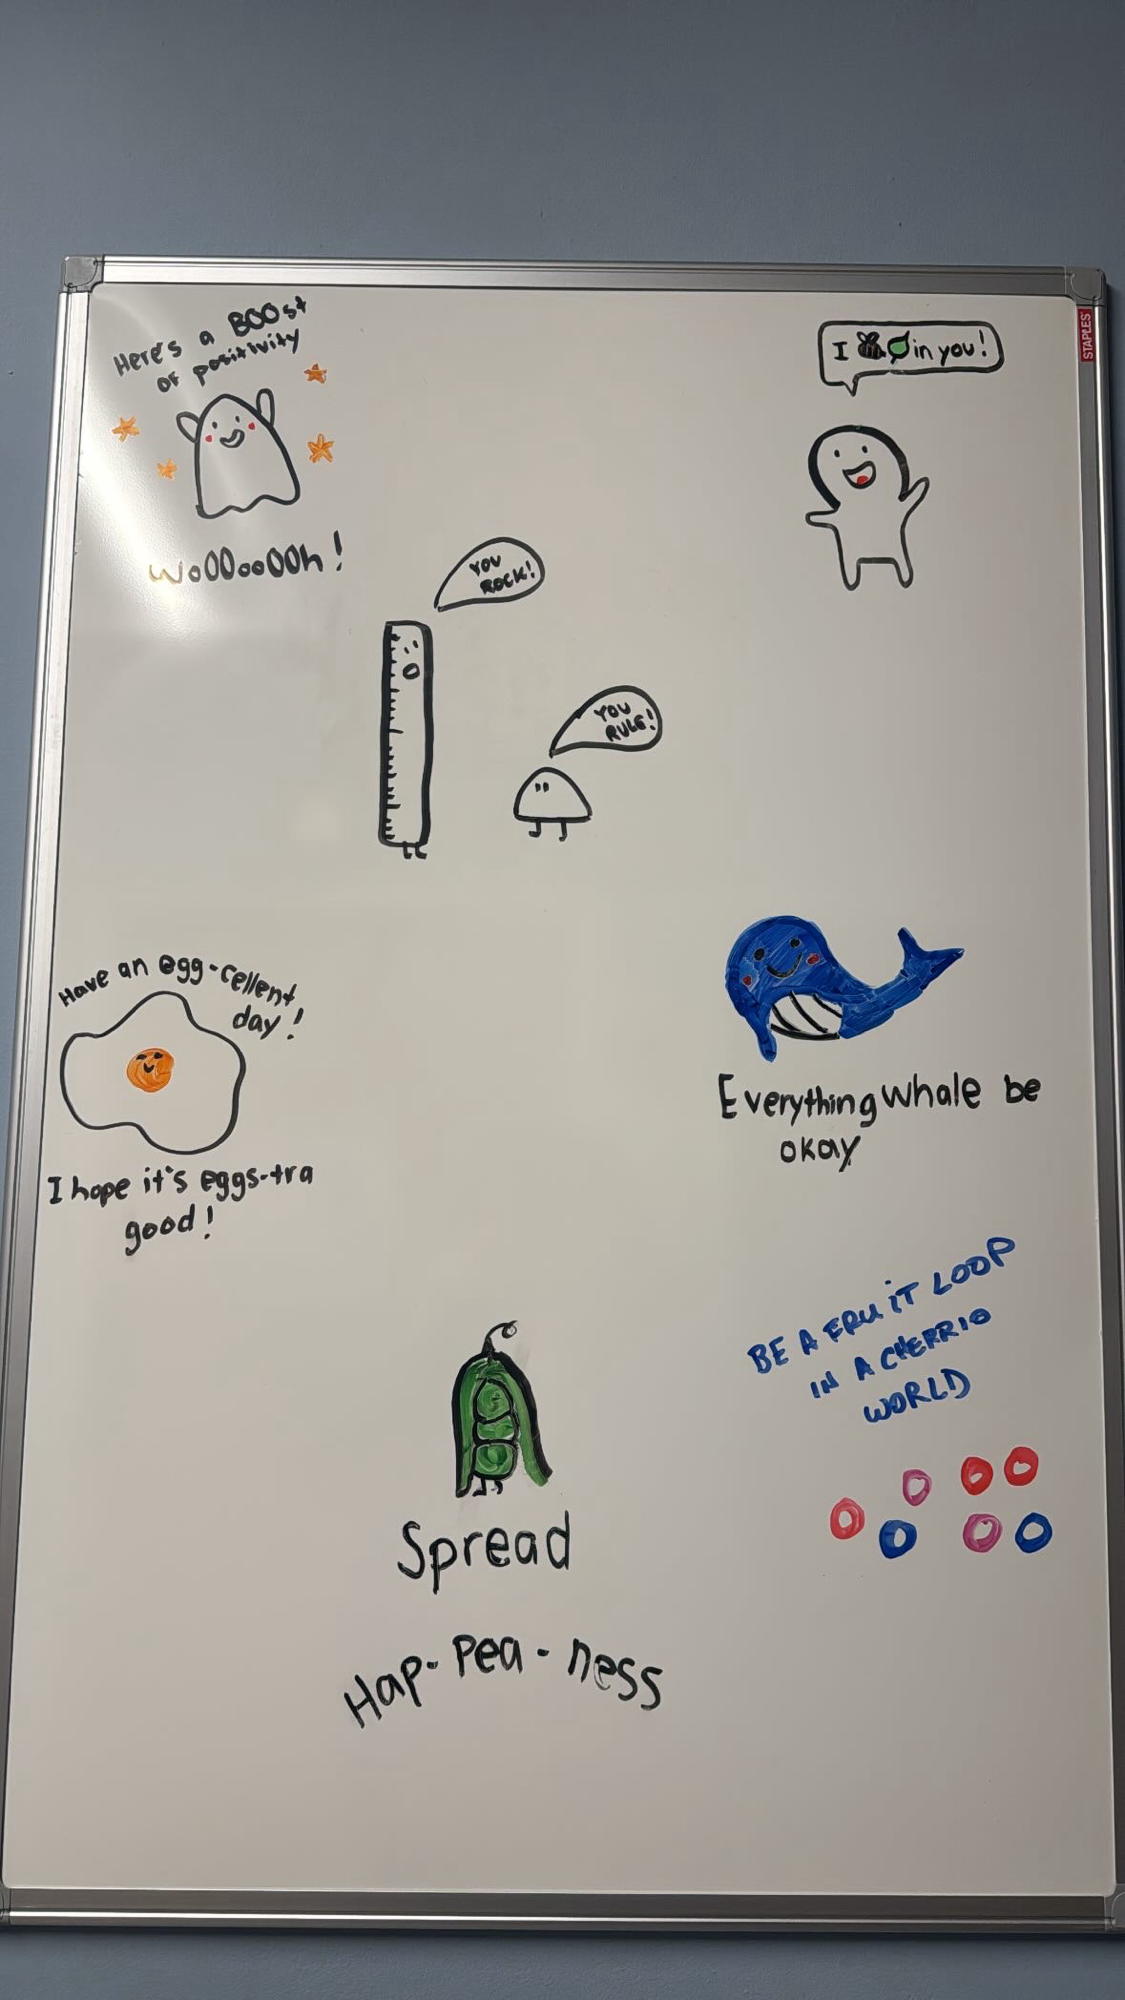 Here's a BOOst
of positivity
woOOooOOh!
I in you!
STAPLES
YOU
ROCK!
YOU
RULE!
Have an egg-cellent
day!
I hope it's eggs-tra
good!
Everything whale be
okay
BE A FRUiT LOOP
IN A CHERRIO
WORLD
Spread
Hap-Pea-ness